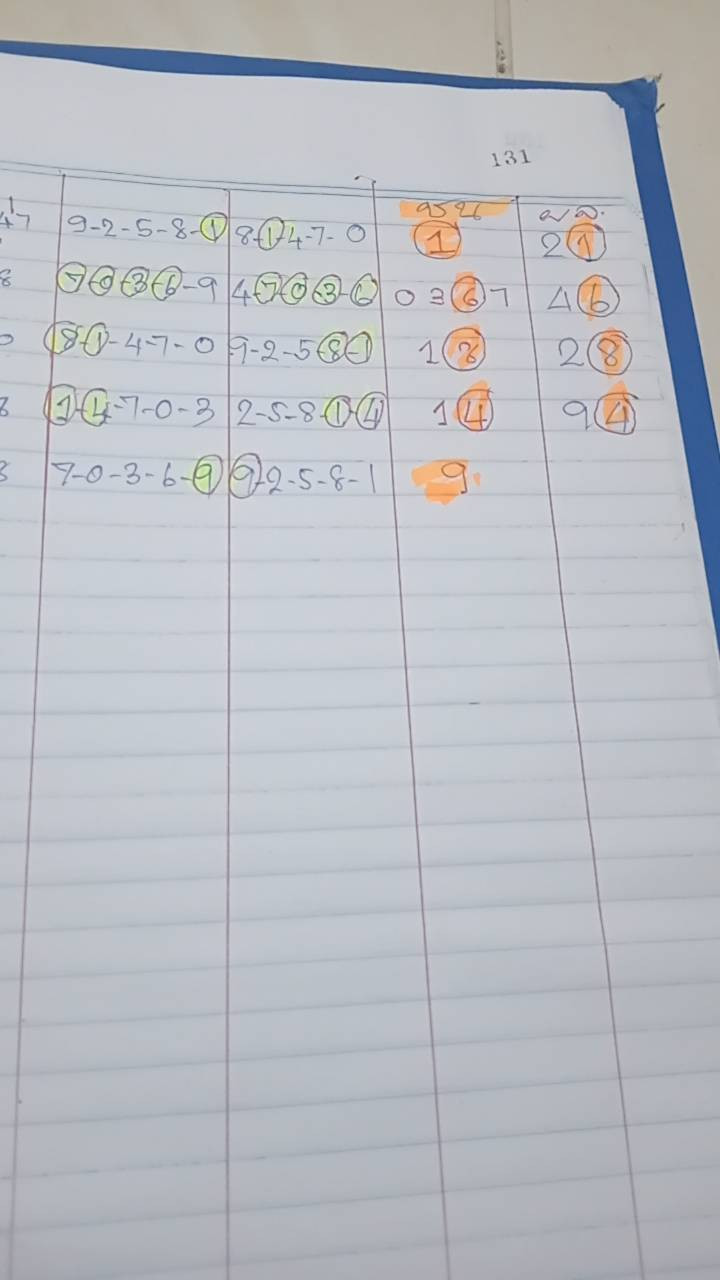 131
47 9-2-5-8-1 8-1-4-7-0 1 21
8 7-0-3-6-9 4-7-0-3-6 0 3 6 7 46
0 8-1-4-7-0 9-2-5-8-1 1 8 28
8 1-4-7-0-3 2-5-8-1-4 1 4 94
3 7-0-3-6-9 9-2-5-8-1 9